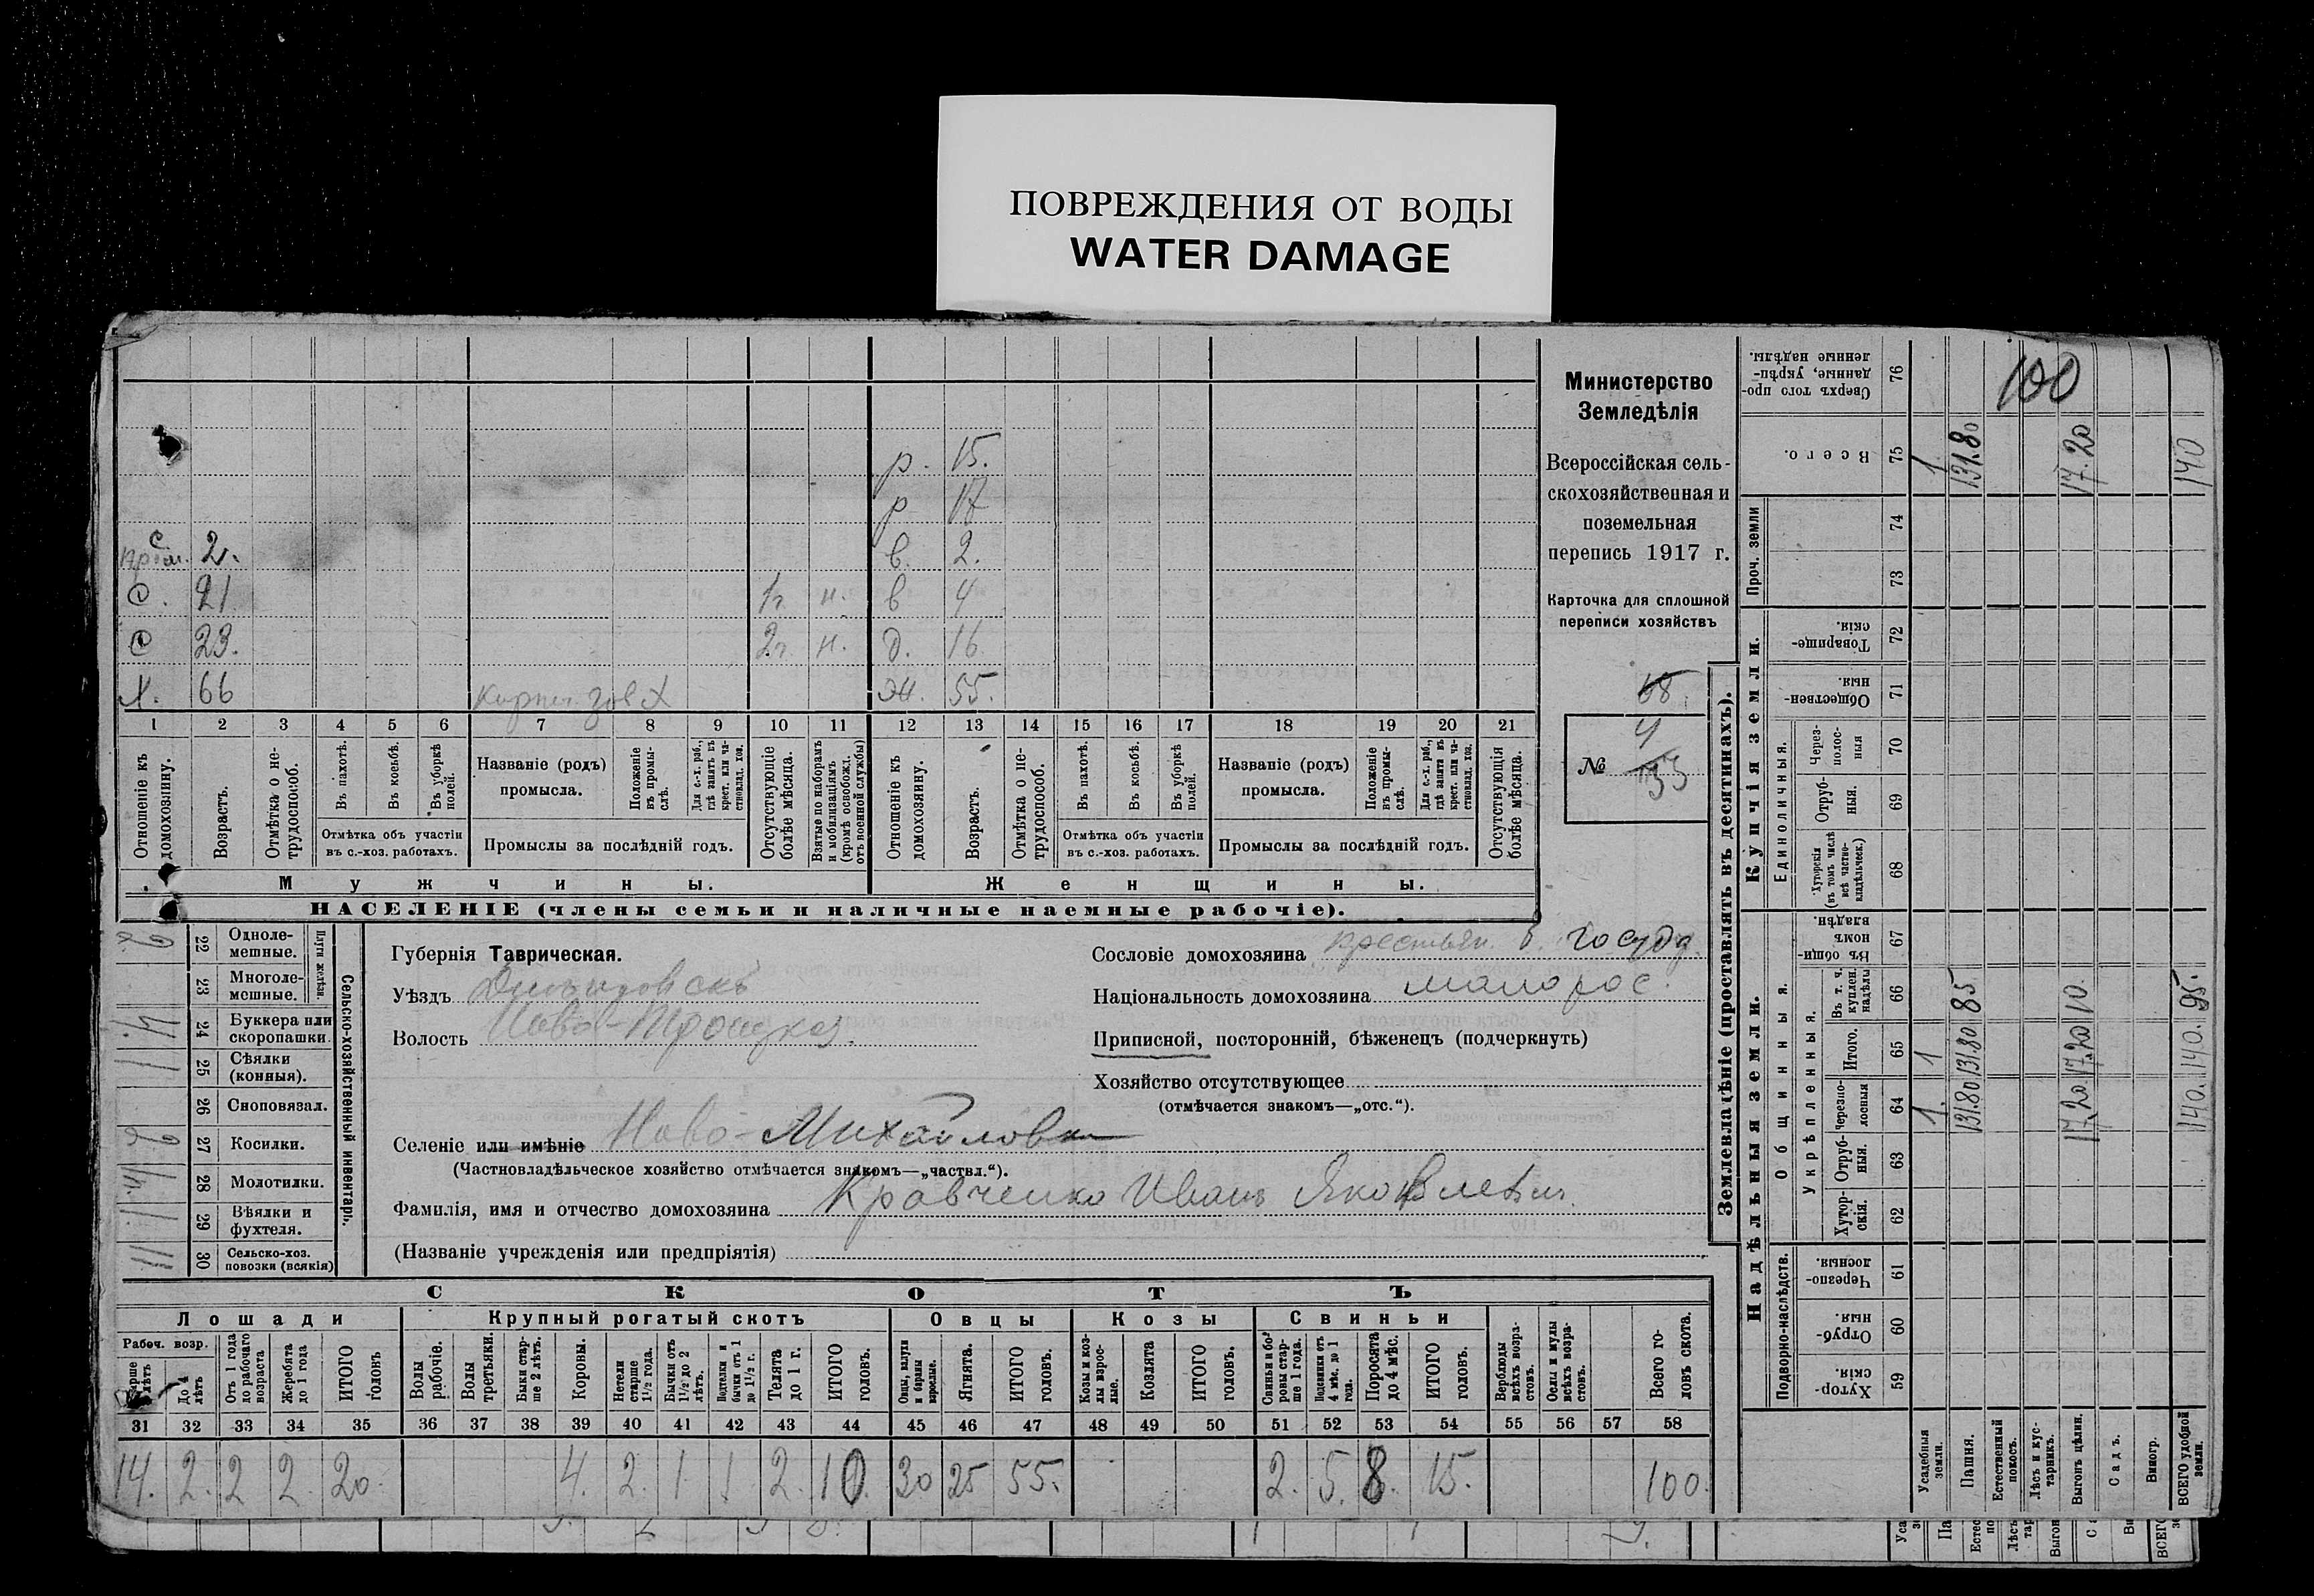 ПОВРЕЖДЕНИЯ ОТ ВОДЫ
WATER DAMAGE
р. 15.
р 17
С 2. в. 2.
С. 21 1г. н. в 4
С 23. 2г. н. д. 16
Х. 66 ж. 55.
1 2 3 4 5 6 7 8 9 10 11 12 13 14 15 16 17 18 19 20 21
Отношеніе къ домохозяину.
Возрастъ.
Отмѣтка о нетрудоспособ.
Въ пахотѣ.
Въ косьбѣ.
Въ уборкѣ полей.
Отмѣтка объ участіи въ с.-хоз. работахъ.
Названіе (родъ) промысла.
Положеніе въ промыслѣ.
Для с.-х. раб., гдѣ занятъ въ крест. или частновлад. хоз.
Промыслы за послѣдній годъ.
Отсутствующіе болѣе мѣсяца.
Взятые по наборамъ и мобилизаціямъ (кромѣ освобожд. отъ военной службы)
Отношеніе къ домохозяину.
Возрастъ.
Отмѣтка о нетрудоспособ.
Въ пахотѣ.
Въ косьбѣ.
Въ уборкѣ полей.
Отмѣтка объ участіи въ с.-хоз. работахъ.
Названіе (родъ) промысла.
Положеніе въ промыслѣ.
Для с.-х. раб., гдѣ занята въ крест. или частновлад. хоз.
Промыслы за послѣдній годъ.
Отсутствующія болѣе мѣсяца.
Мужчины. Женщины.
НАСЕЛЕНІЕ (члены семьи и наличные наемные рабочіе).
Министерство
Земледѣлія
Всероссійская сель-
скохозяйственная и
поземельная
перепись 1917 г.
Карточка для сплошной
переписи хозяйствъ
68.
№ 4
133
22 Однолемешные.
23 Многолемешные.
Плуги желѣзн.
24 Буккера или скоропашки.
25 Сѣялки (конныя).
26 Сноповязал.
27 Косилки.
28 Молотилки.
29 Вѣялки и фухтеля.
30 Сельско-хоз. повозки (всякія)
Сельско-хозяйственный инвентарь.
Губернія Таврическая.
Уѣздъ
Волость Ново-Троицкая.
Сословіе домохозяина крестьян. б. госуд.
Національность домохозяина малорос.
Приписной, посторонній, бѣженецъ (подчеркнуть)
Хозяйство отсутствующее
(отмѣчается знакомъ—„отс.“).
Селеніе или имѣніе Ново-Михайловка
(Частновладѣльческое хозяйство отмѣчается знакомъ—„частвл.“).
Фамилія, имя и отчество домохозяина Кравченко Иванъ Яковлевич.
(Названіе учрежденія или предпріятія)
СКОТЪ
Лошади Крупный рогатый скотъ Овцы Козы Свиньи
Рабоч. возр.
До 4 лѣтъ
Отъ 1 года до рабочаго возраста
Жеребята до 1 года
ИТОГО головъ
Волы рабочіе.
Волы третьяки.
Быки старше 2 лѣтъ.
Коровы.
Нетели старше 1½ года.
Бычки отъ 1½ до 2 лѣтъ.
Подтелки и бычки отъ 1 до 1½ г.
Телята до 1 г.
ИТОГО головъ.
Овцы, валухи и бараны взрослые.
Ягнята.
ИТОГО головъ.
Козы и козлы взрослые.
Козлята
ИТОГО головъ.
Свиньи и боровы старше 1 года.
Подсвинки отъ 4 мѣс. до 1 года.
Поросята до 4 мѣс.
ИТОГО головъ.
Верблюды всѣхъ возрастовъ.
Ослы и мулы всѣхъ возрастовъ.
Всего головъ скота.
31 32 33 34 35 36 37 38 39 40 41 42 43 44 45 46 47 48 49 50 51 52 53 54 55 56 57 58
14. 2. 2 2. 20. 4. 2. 1 1 2. 10. 30 25 55. 2. 5. 8. 15. 100.
Землевладѣніе (проставлять въ десятинахъ).
Надѣльныя земли. Купчія земли.
Проч. земли
Сверхъ того проданные, укрѣпленные надѣлы. 76 100
Всего. 75 1 131.80 17.20 140
74
73
Товарищескія. 72
Общественныя. 71
Единоличныя.
Черезполосныя 70
Отрубныя. 69
Хуторскія (въ томъ числѣ всѣ частновладѣльческ.) 68
Общинныя.
Укрѣпленныя.
Въ общинномъ владѣн. 67
Въ т. ч. куплен. надѣлы 66 85 10. 95.
Итого. 65 1 131.80 17.20 140.
Черезполосныя 64 1. 131.80 17.20 140.
Отрубныя. 63
Хуторскія. 62
Подворно-наслѣдств.
Черезполосныя. 61
Отрубныя. 60
Хуторскія. 59
Усадебныя земли.
Пашня.
Естественный покосъ.
Лѣсъ и кустарникъ.
Выгонъ цѣлин.
Садъ.
Виногр.
ВСЕГО удобной земли.